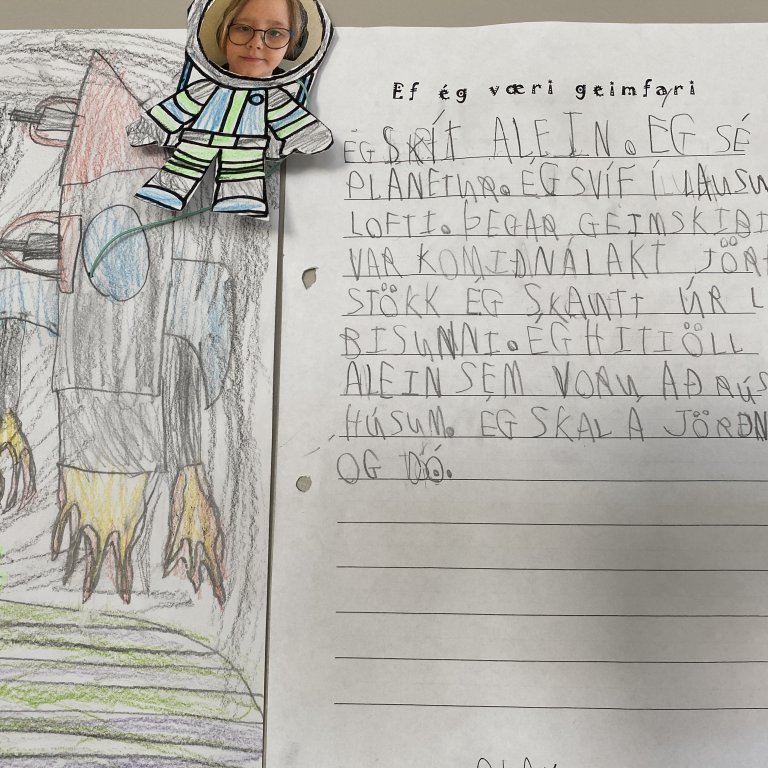 Ef ég væri geimfari
ÉG SKÍT ALEIN. ÉG SÉ
PLANETUR. ÉG SVÍF Í LAUSU
LOFTI. ÞEGAR GEIMSKIÐI
VAR KOMIÐNÁLAKT JÖRÐ
STÖKK ÉG SKAUTT ÚR L
BISUNNI. ÉG HITIÖLL
ALEIN SEM VORU AÐ RÚS
HÚSUM. ÉG SKAL A JÖRÐN
OG DÓ.